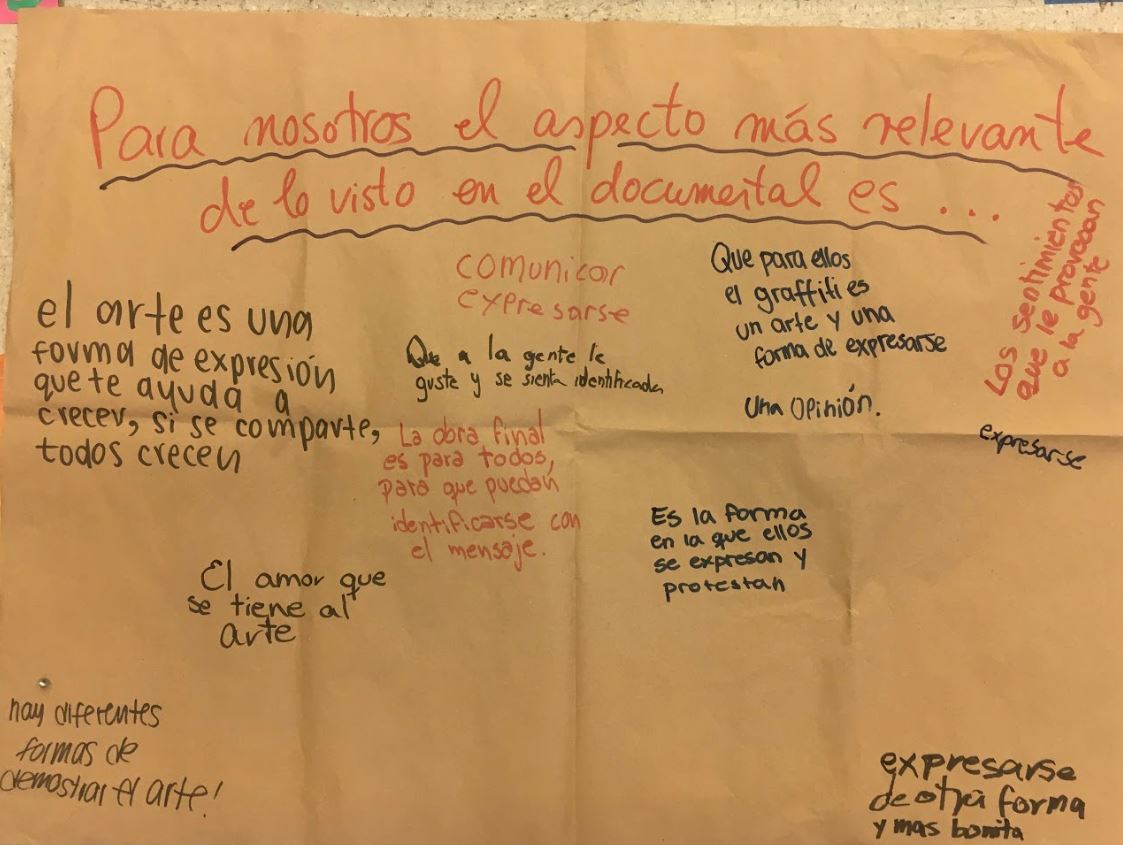 Para nosotros el aspecto más relevante
de lo visto en el documental es ...
Los sentimientos
que le provocan
a la gente
comunicar
expresarse
Que para ellos
el graffiti es
un arte y una
forma de expresarse
el arte es una
forma de expresión
que te ayuda a
crecer, si se comparte,
todos crecen
Que a la gente le
guste y se sienta identificada
Una Opinión.
expresarse
La obra final
es para todos,
para que puedan
identificarse con
el mensaje.
Es la forma
en la que ellos
se expresan y
protestan
El amor que
se tiene al
arte
hay diferentes
formas de
demostrar el arte!
expresarse
de otra forma
y mas bonita